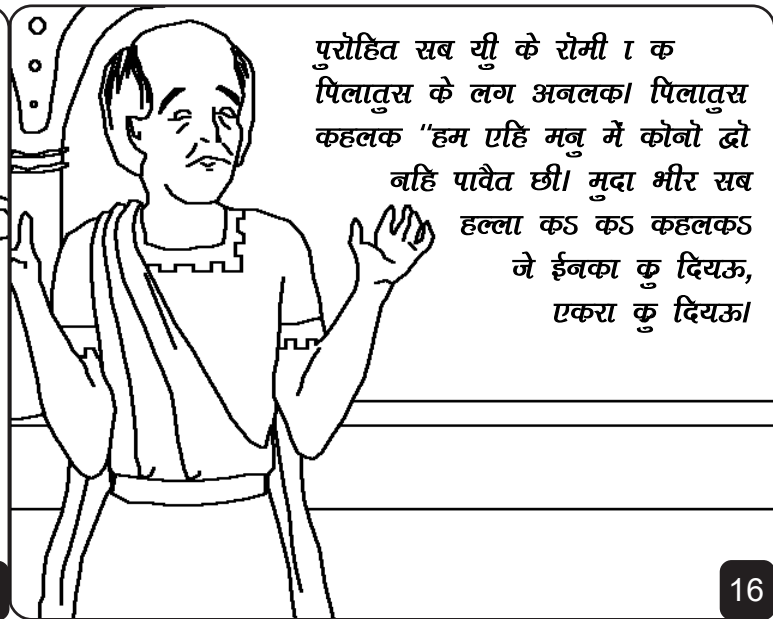 पुरोहित सब यी़ु के रोमी ा क
पिलातुस के लग अनलक। पिलातुस
कहलक "हम एहि मनु में कोनो द्वो
नहि पावैत छी। मुदा भीर सब
हल्ला कऽ कऽ कहलकऽ
जे ईनका कु दियऊ,
एकरा कु दियऊ।
16